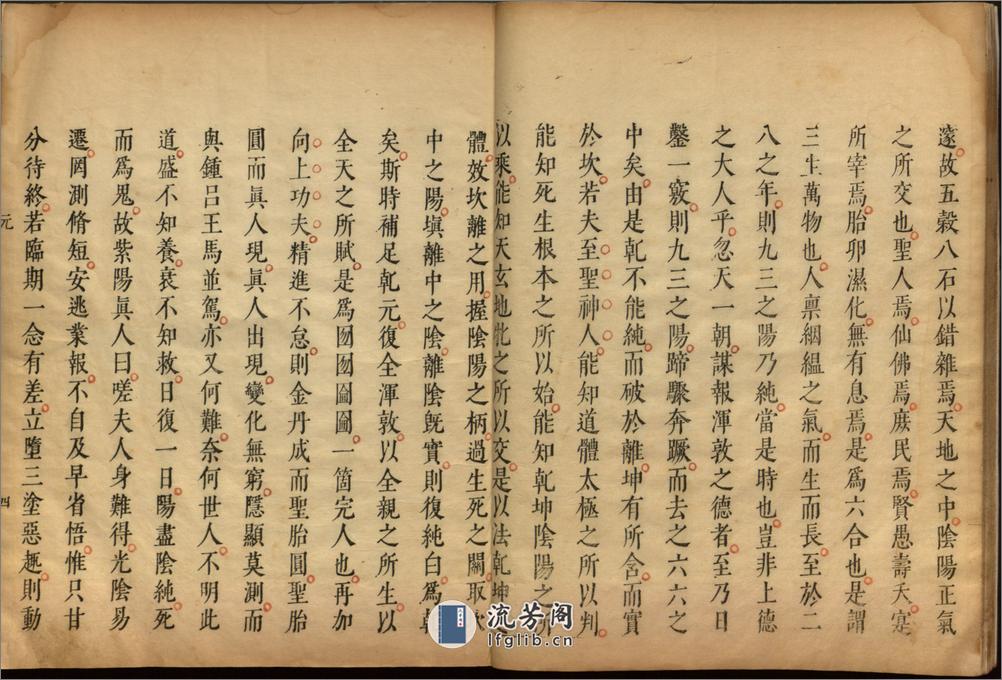 邃故五穀八石以錯雜焉天地之中陰陽正氣
之所交也聖人焉仙佛焉庶民焉賢愚壽夭寔
所宰焉胎卵濕化無有息焉是爲六合也是謂
三生萬物也人禀絪縕之氣而生而長至於二
八之年則九三之陽乃純當是時也豈非上德
之大人乎忽天一朝謀報渾敦之德者至乃日
鑿一竅則九三之陽蹄驟奔蹶而去之六六之
中矣由是乹不能純而破於離坤有所含而實
於坎若夫至聖神人能知道體太極之所以判
能知死生根本之所以始能知乹坤陰陽之所
以乘能知天玄地牝之所以交是以法乹坤之
體效坎離之用握陰陽之柄過生死之關取坎
中之陽塡離中之陰離陰旣實則復純白爲乹
矣斯時補足乹元復全渾敦以全親之所生以
全天之所賦是爲囫囫圇圇一箇完人也再加
向上功夫精進不怠則金丹成而聖胎圓聖胎
圓而眞人現眞人出現變化無窮隱顯莫測而
與鍾呂王馬並駕亦又何難奈何世人不明此
道盛不知養衰不知救日復一日陽盡陰純死
而爲鬼故紫陽眞人曰嗟夫人身難得光陰易
遷罔測脩短安逃業報不自及早省悟惟只甘
分待終若臨期一念有差立墮三塗惡趣則動
元
四
流芳阁
lfglib.cn